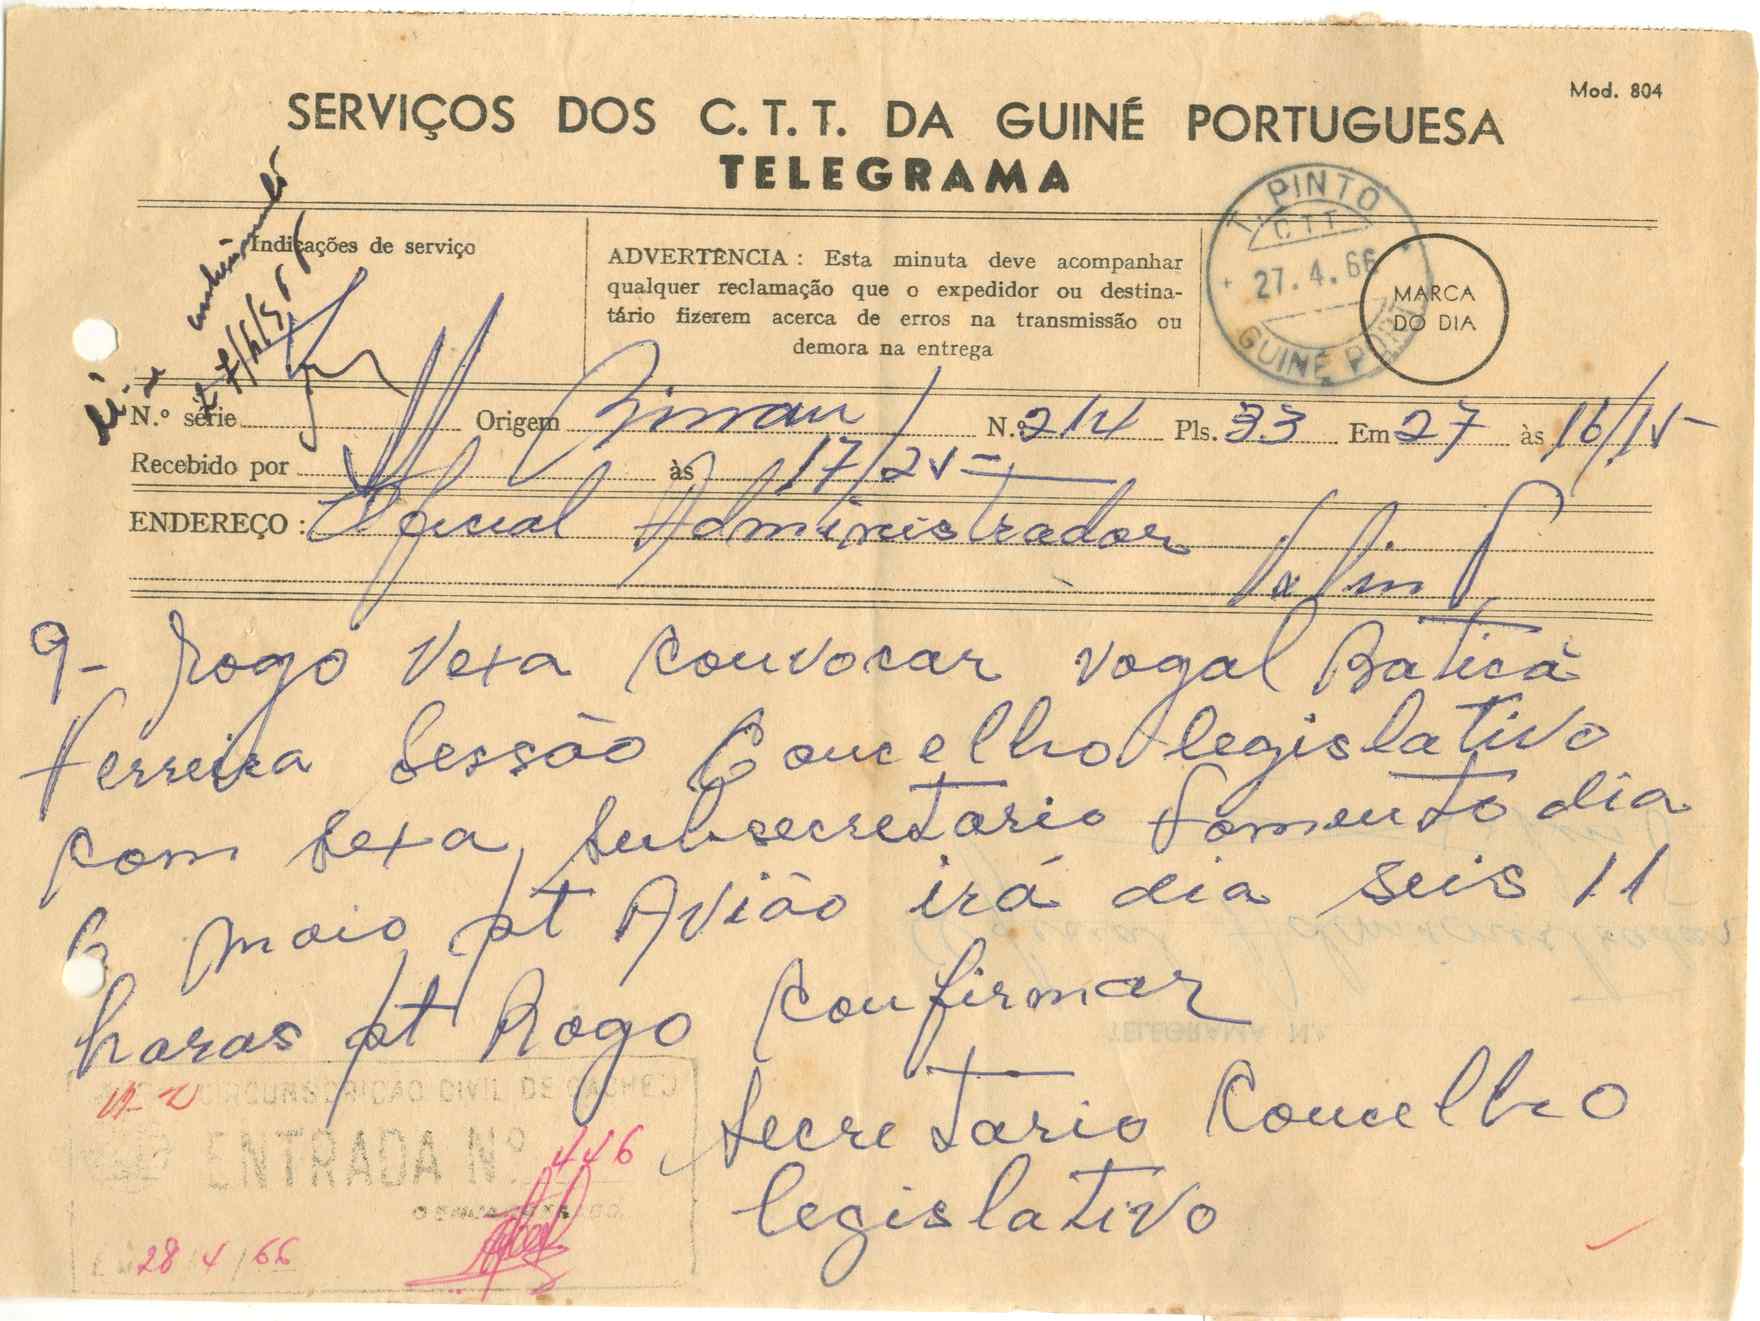 Mod. 804
SERVIÇOS DOS C.T.T. DA GUINÉ PORTUGUESA
TELEGRAMA
Indicações de serviço
ADVERTÊNCIA : Esta minuta deve acompanhar
qualquer reclamação que o expedidor ou destina-
tário fizerem acerca de erros na transmissão ou
demora na entrega
T. PINTO
CTT
27.4.66
GUINÉ PORT
MARCA
DO DIA
N.º série Origem Bissau N.º 214 Pls. 33 Em 27 às 16/15
Recebido por às 17/25
ENDEREÇO : Oficial Administrador
9- Rogo Vexa convocar vogal Baticã
Ferreira Sessão Concelho legislativo
com Sexa Subsecretario Fomento dia
6 maio pt Avião irá dia seis 11
horas pt Rogo confirmar
Secretario Concelho
legislativo
CIRCUNSCRIÇÃO CIVIL DE CACHEU
ENTRADA N.º 446
28/4/66
TELEGRAMA N.º